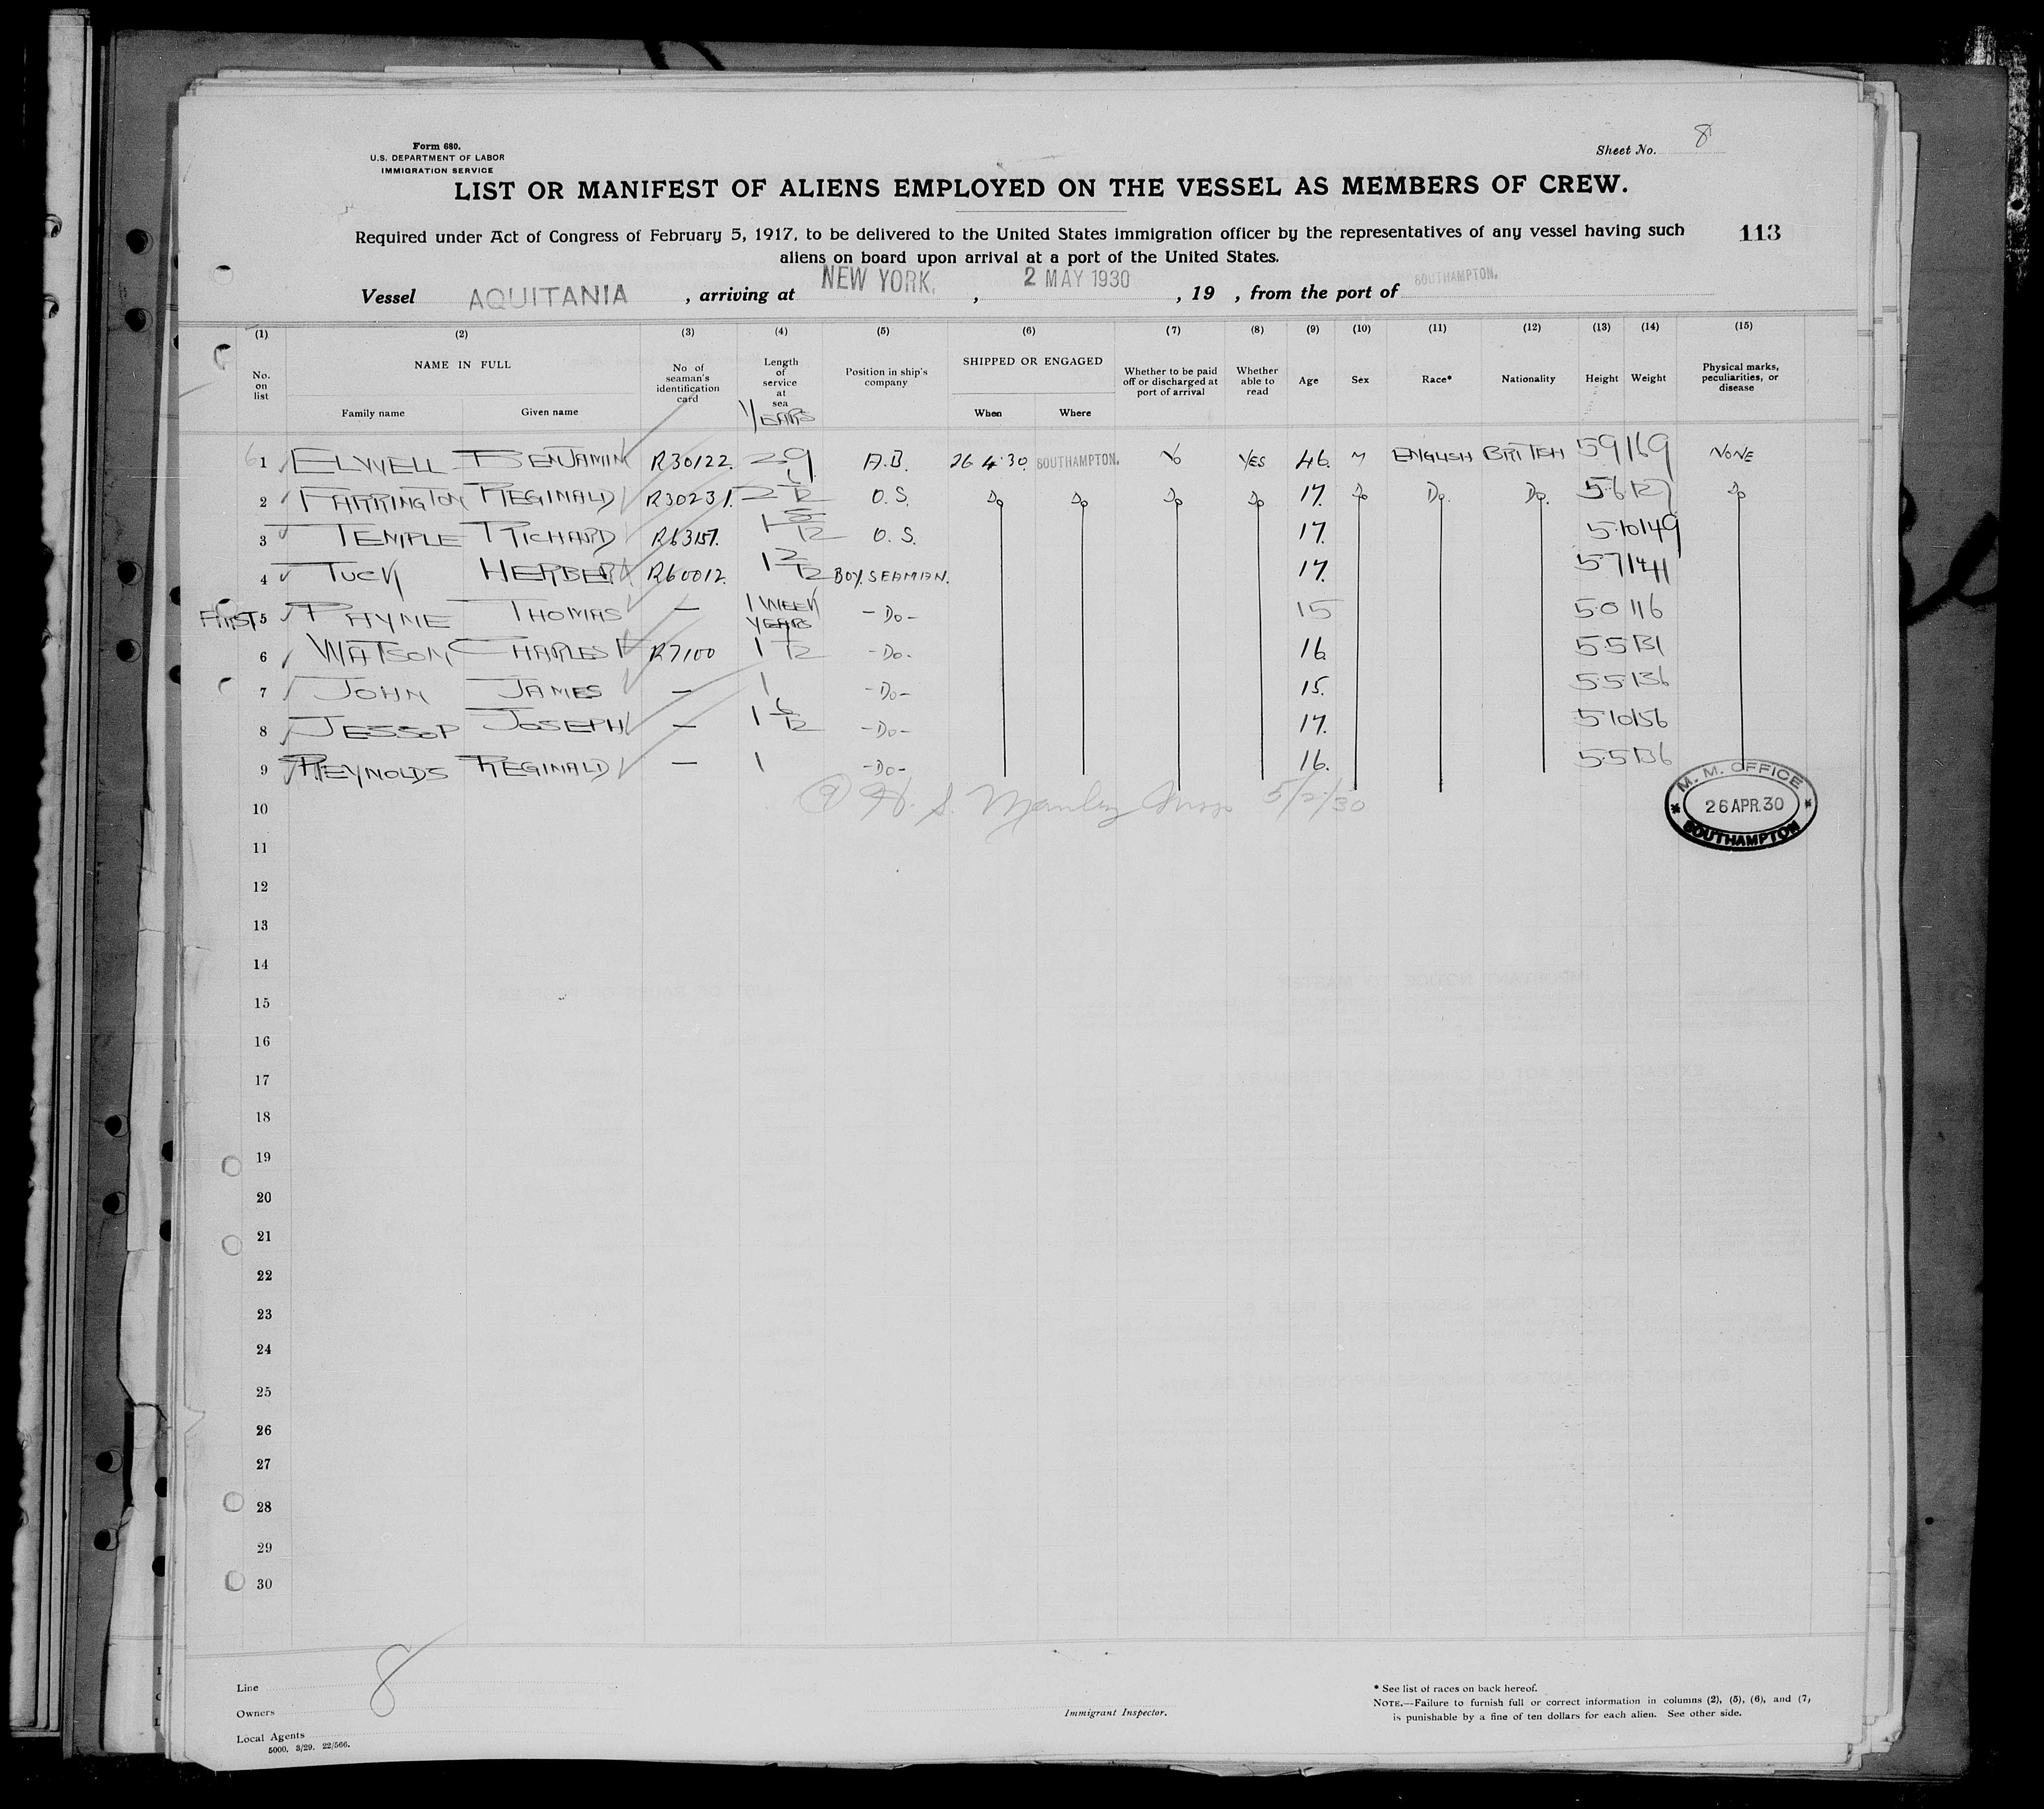 Form 680.
U.S. DEPARTMENT OF LABOR
IMMIGRATION SERVICE
Sheet No. 8
LIST OR MANIFEST OF ALIENS EMPLOYED ON THE VESSEL AS MEMBERS OF CREW.
Required under Act of Congress of February 5, 1917, to be delivered to the United States immigration officer by the representatives of any vessel having such
113
aliens on board upon arrival at a port of the United States.
Vessel AQUITANIA , arriving at NEW YORK. , 2 MAY 1930 , 19 , from the port of SOUTHAMPTON.
(1) (2) (3) (4) (5) (6) (7) (8) (9) (10) (11) (12) (13) (14) (15)
No. on list NAME IN FULL Family name Given name No of seaman's identification card Length of service at sea YEARS Position in ship's company SHIPPED OR ENGAGED When Where Whether to be paid off or discharged at port of arrival Whether able to read Age Sex Race* Nationality Height Weight Physical marks, peculiarities, or disease
1 ELWELL BENJAMIN R30122. 29 A.B. 26 4.30. SOUTHAMPTON. No YES 46. M ENGLISH BRITISH 59 169 NONE
2 FARRINGTON REGINALD R30231. 2 O.S. Do Do Do Do 17. Do Do. Do. 5.6 127 Do
3 TEMPLE RICHARD R63157. 1 5/12 O.S. 17. 5.10 149
4 TUCK HERBERT R60012. 1 2/12 BOY. SEAMAN. 17. 5.7 141
FIRST 5 PAYNE THOMAS — 1 WEEK - Do - 15 5.0 116
YEARS
6 WATSON CHARLES R7100 1 /12 - Do. 16 5.5 131
7 JOHN JAMES — 1 - Do - 15. 5.5 136
8 JESSOP JOSEPH — 1 6/12 - Do - 17. 5.10 156
9 REYNOLDS REGINALD — 1 - Do - 16. 5.5 136
M. M. OFFICE
26 APR. 30
SOUTHAMPTON
10 (9) H. S. Manley 5/2/30
11
12
13
14
15
16
17
18
19
20
21
22
23
24
25
26
27
28
29
30
8
Line
Owners
Local Agents
5000. 3/29. 22/566.
Immigrant Inspector.
* See list of races on back hereof.
NOTE.—Failure to furnish full or correct information in columns (2), (5), (6), and (7,
is punishable by a fine of ten dollars for each alien. See other side.